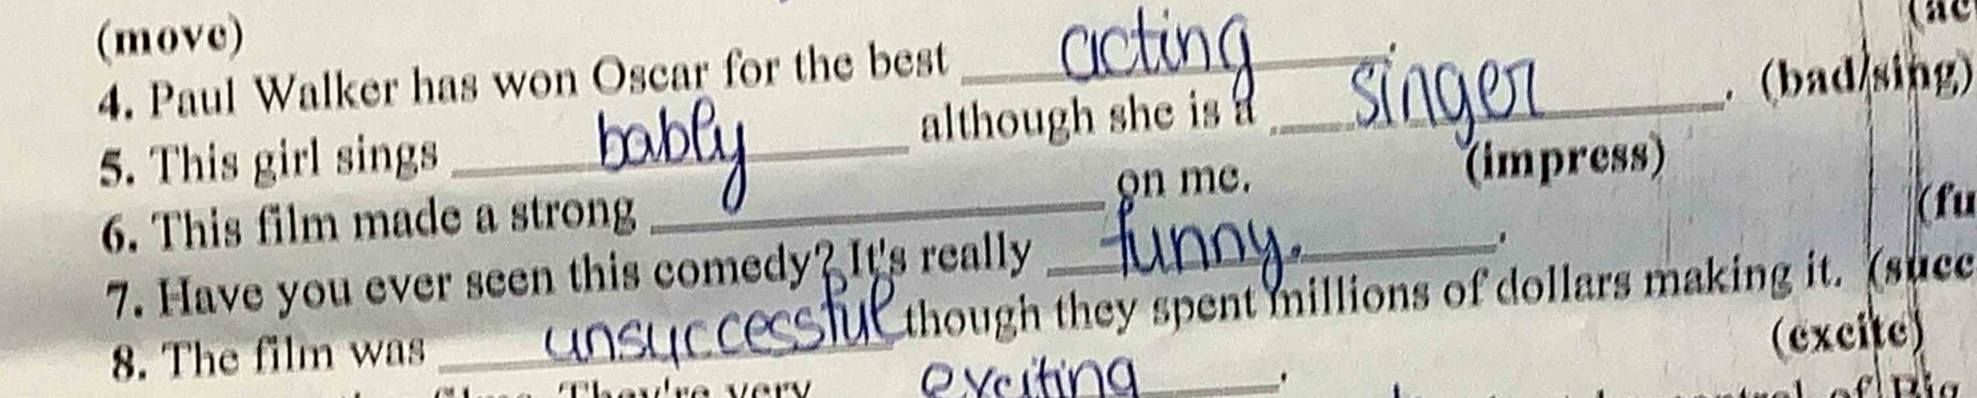 (move)
4. Paul Walker has won Oscar for the best acting
5. This girl sings bably although she is a singer. (bad/sing)
6. This film made a strong on me. (impress)
7. Have you ever seen this comedy? It's really funny. (fu
8. The film was unsuccessful though they spent millions of dollars making it. (succ
They're very exciting. (excite)